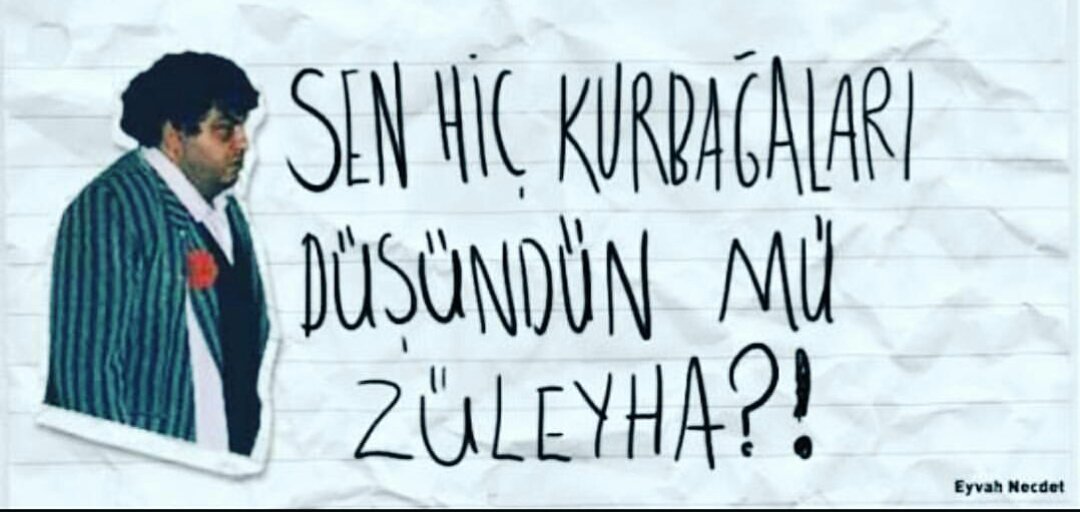 SEN HİÇ KURBAĞALARI
DÜŞÜNDÜN MÜ
ZÜLEYHA?!
Eyvah Necdet